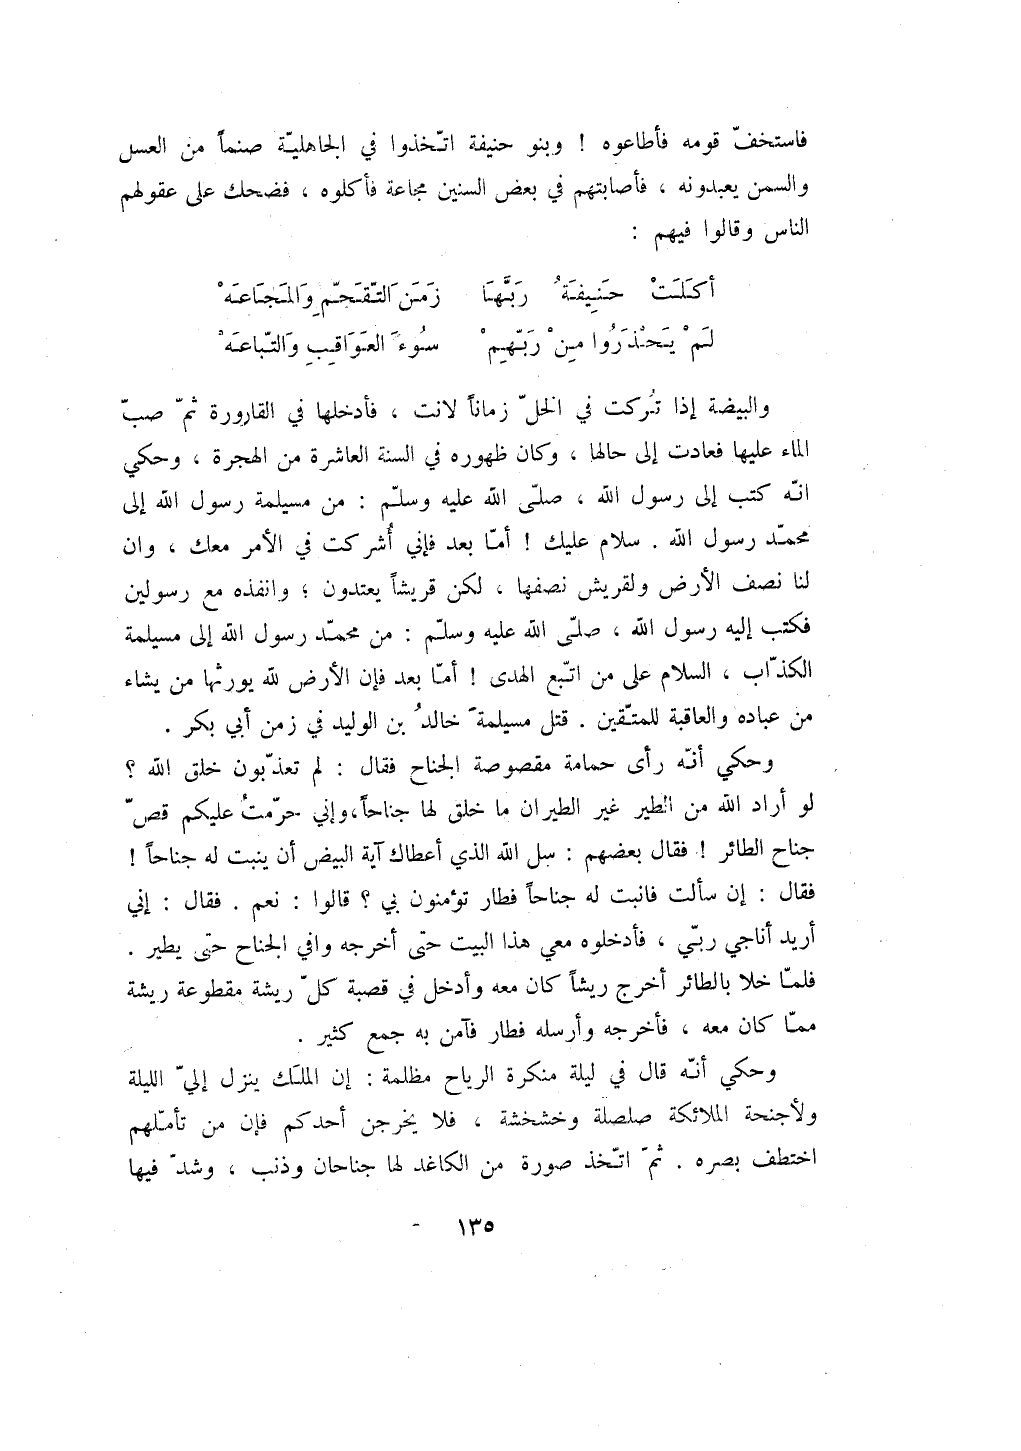 فاستخفّ قومه فأطاعوه ! وبنو حنيفة اتّخذوا في الجاهليّة صنماً من العسل
والسمن يعبدونه ، فأصابتهم في بعض السنين مجاعة فأكلوه ، فضحك على عقولهم
الناس وقالوا فيهم :
أَكَلَتْ حَنِيفَةُ رَبَّهَا زَمَنَ التّقَحّمِ وَالمَجَاعَهْ
لَمْ يَحْذَرُوا مِنْ رَبّهِمْ سُوءَ العَوَاقِبِ وَالتّباعَهْ
والبيضة إذا تُركت في الخلّ زماناً لانت ، فأدخلها في القارورة ثمّ صبّ
الماء عليها فعادت إلى حالها ، وكان ظهوره في السنة العاشرة من الهجرة ، وحكي
انّه كتب إلى رسول الله ، صلّى الله عليه وسلّم : من مسيلمة رسول الله إلى
محمّد رسول الله . سلام عليك ! أمّا بعد فإني أُشركت في الأمر معك ، وان
لنا نصف الأرض ولقريش نصفها ، لكن قريشاً يعتدون ؛ وانفذه مع رسولين
فكتب إليه رسول الله ، صلّى الله عليه وسلّم : من محمّد رسول الله إلى مسيلمة
الكذّاب ، السلام على من اتّبع الهدى ! أمّا بعد فإن الأرض لله يورثها من يشاء
من عباده والعاقبة للمتّقين . قتل مسيلمةَ خالدُ بن الوليد في زمن أبي بكر .
وحكي أنّه رأى حمامة مقصوصة الجناح فقال : لم تعذّبون خلق الله ؟
لو أراد الله من الطير غير الطيران ما خلق لها جناحاً، وإني حرّمتُ عليكم قصّ
جناح الطائر ! فقال بعضهم : سل الله الذي أعطاك آية البيض أن ينبت له جناحاً !
فقال : إن سألت فانبت له جناحاً فطار تؤمنون بي ؟ قالوا : نعم . فقال : إني
أريد أناجي ربّي ، فأدخلوه معي هذا البيت حتّى أخرجه وافي الجناح حتّى يطير .
فلمّا خلا بالطائر أخرج ريشاً كان معه وأدخل في قصبة كلّ ريشة مقطوعة ريشة
ممّا كان معه ، فأخرجه وأرسله فطار فآمن به جمع كثير .
وحكي أنّه قال في ليلة منكرة الرياح مظلمة : إن الملَك ينزل إليّ الليلة
ولأجنحة الملائكة صلصلة وخشخشة ، فلا يخرجن أحدكم فإن من تأمّلهم
اختطف بصره . ثمّ اتّخذ صورة من الكاغد لها جناحان وذنب ، وشدّ فيها
١٣٥ -